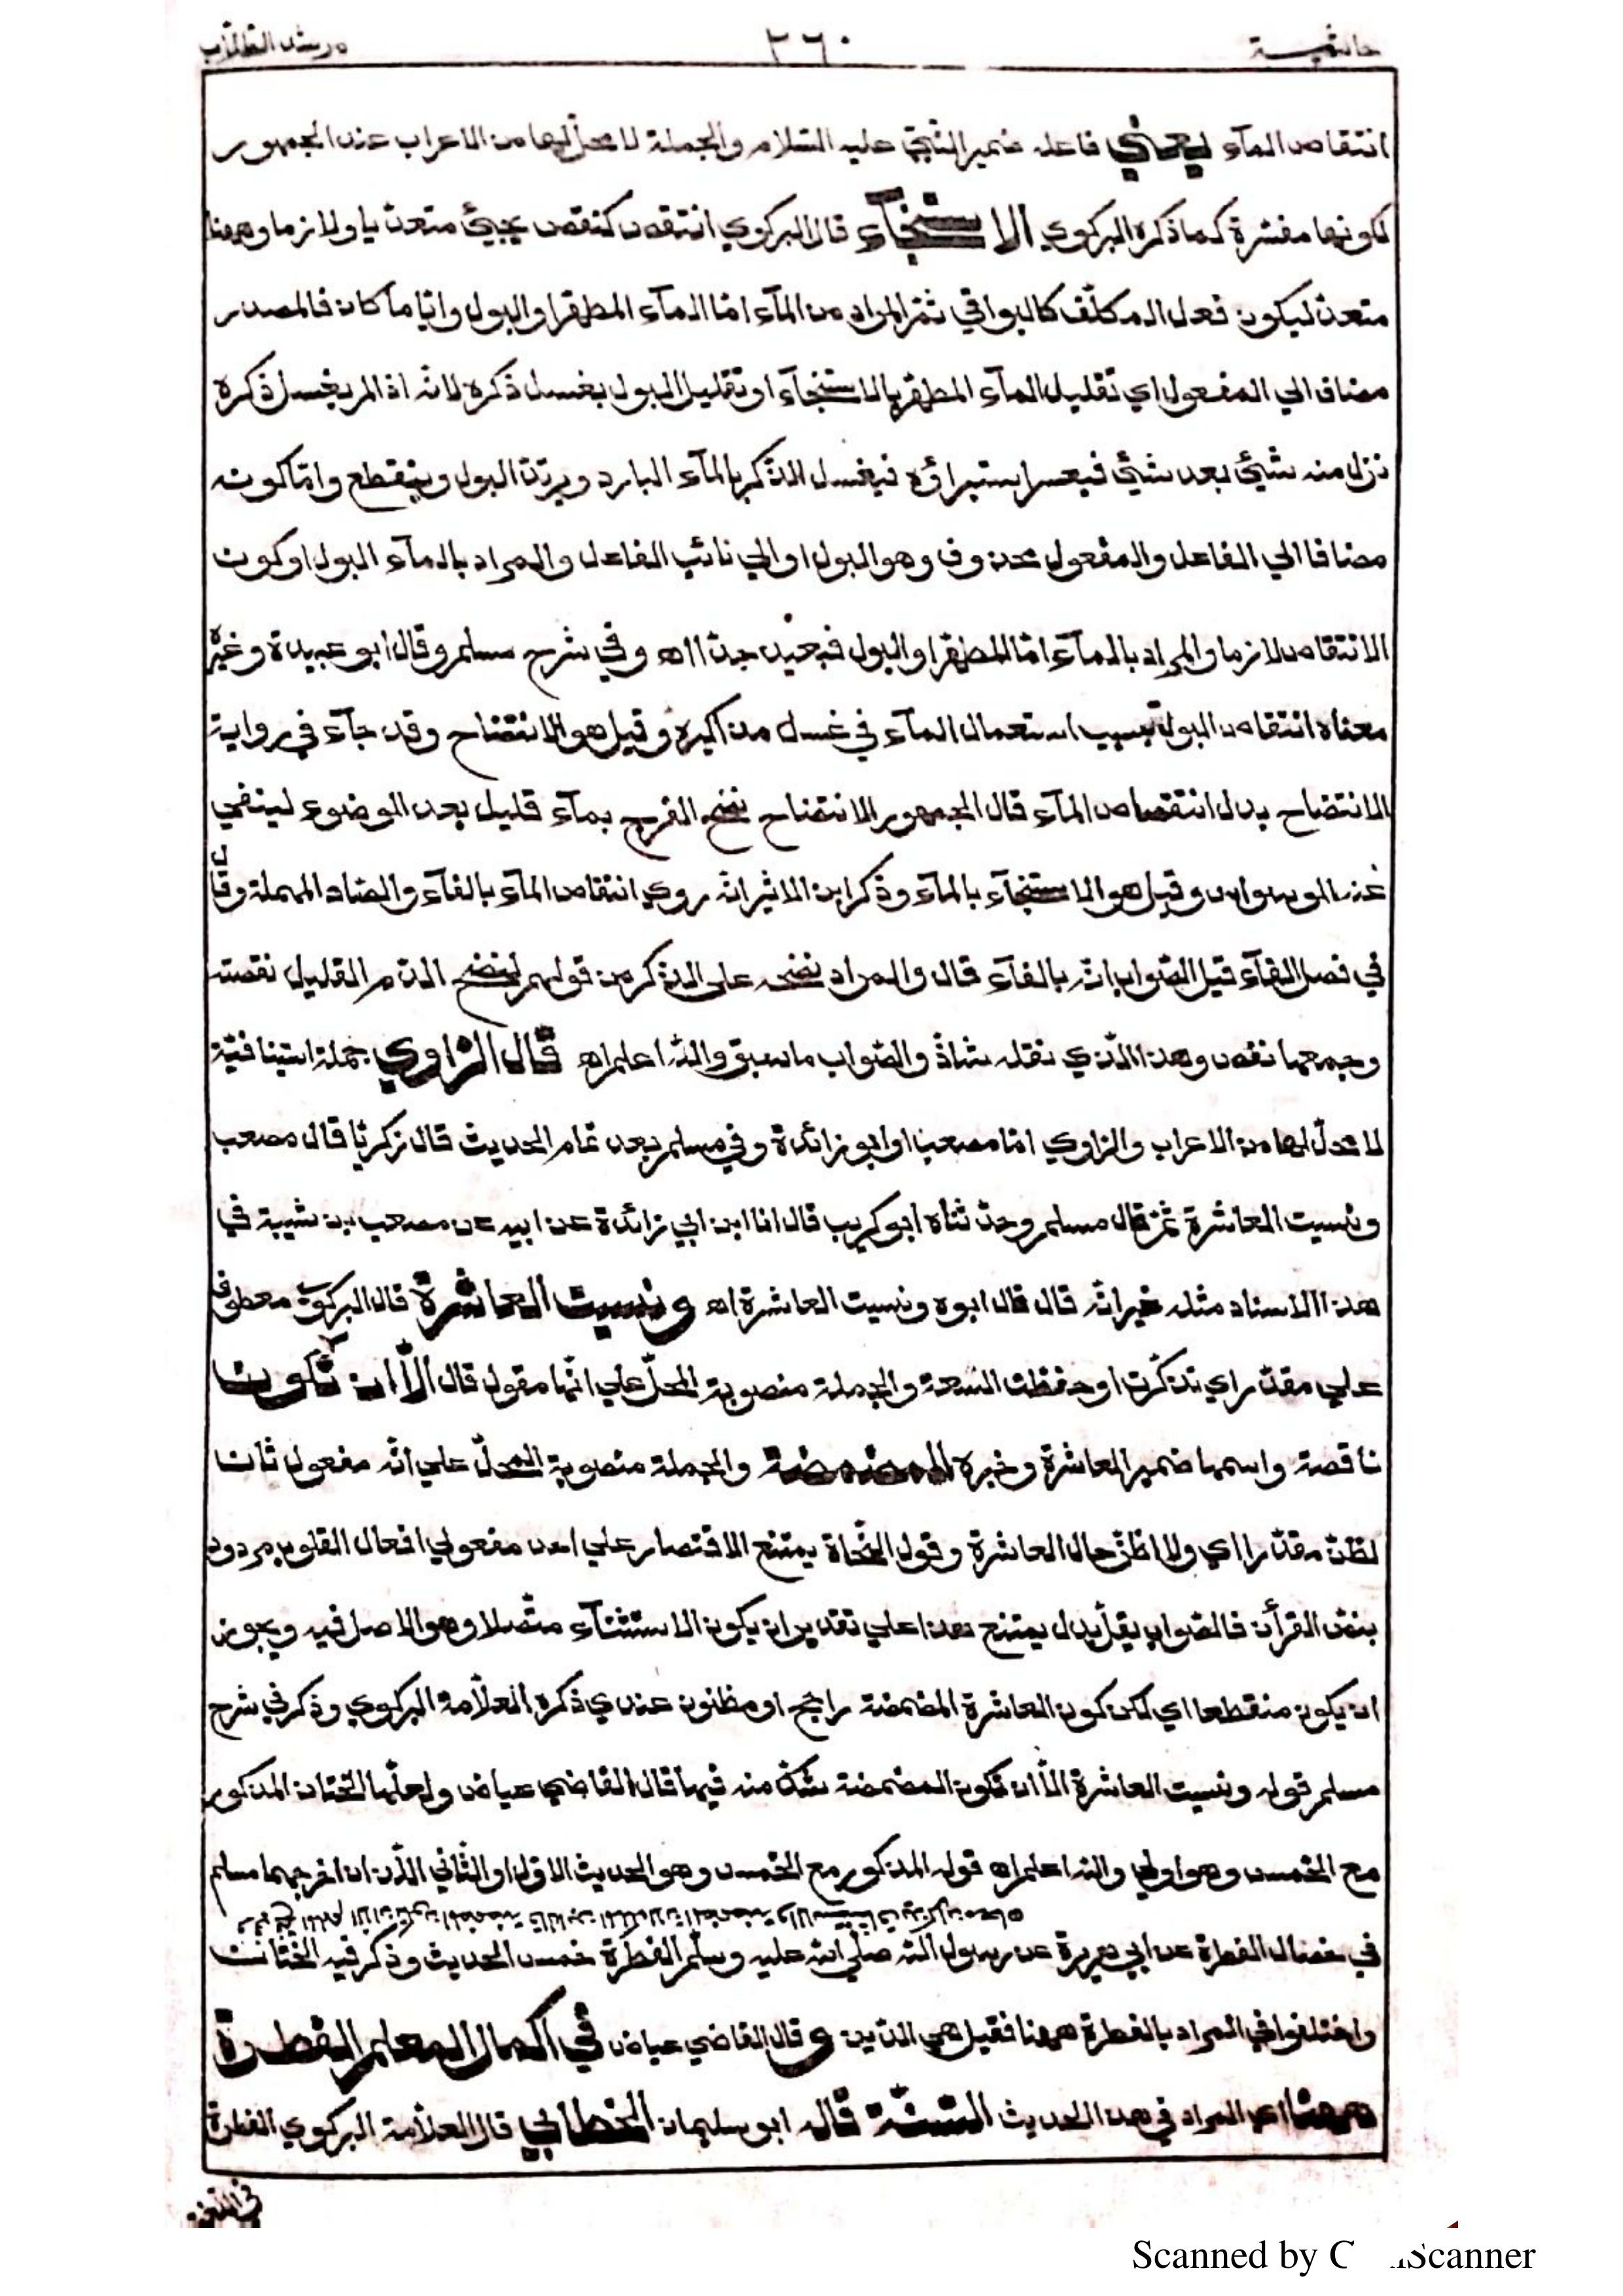 حاشية ٢٦٠ مرشد الطلاب
انتقاص المآء يعني فاعله ضمير النّبيّ عليه السّلام والجملة لا محلّ لها من الاعراب عند الجمهور
لكونها مفسّرة كما ذكره البركوي الاستنجآء قال البركوي انتقص كنقص يجيئ متعدّيا ولازما وههنا
متعدّ ليكون فعل المكلّف كالبواقي ثمّ المراد من المآء امّا المآء المطهّر او البول وايّاما كان فالمصدر
مضاف الي المفعول اي تقليل المآء المطهّر بالاستنجآء او تقليل البول بغسل ذكره لانّه اذا لم يغسل ذكره
نزل منه شيئ بعد شيئ فيعسر استبراؤه فيغسل الذّكر بالمآء البارد ويرتدّ البول وينقطع وامّا كونه
مضافا الي الفاعل والمفعول محذوف وهو البول او الي نائب الفاعل والمراد بالمآء البول او كون
الانتقاص لازما والمراد بالمآء امّا المطهّر او البول فبعيد جدّا اه وفي شرح مسلم وقال ابو عبيدة وغيره
معناه انتقاص البول بسبب استعمال المآء في غسل مذاكيره وقيل هو الانتضاح وقد جآء في رواية
الانتضاح بدل انتقاص المآء قال الجمهور الانتضاح نضح الفرج بمآء قليل بعد الوضوء لينفي
عنه الوسواس وقيل هو الاستنجآء بالمآء وذكر ابن الاثير انّه روي انتفاص المآء بالفآء والصّاد المهملة وقال
في فصل الفآء قيل الصّواب انّه بالفآء قال والمراد نضحه علي الذّكر من قولهم لنضح الدّم القليل نفصة
وجمعها نفص وهذا الّذي نقله شاذّ والصّواب ما سبق واللّه اعلم اه قال الرّاوي جملة استينافيّة
لا محلّ لها من الاعراب والرّاوي امّا مصعبا او ابو زائدة وفي مسلم بعد تمام الحديث قال زكريّا قال مصعب
ونسيت العاشرة ثمّ قال مسلم وحدّثناه ابو كريب قال انا ابن ابي زائدة عن ابيه عن مصعب بن شيبة في
هذا الاسناد مثله غير انّه قال قال ابوه ونسيت العاشرة اه ونسيت العاشرة قال البركوي معطوف
علي مقدّر اي تذكّرت او حفظت التّسعة والجملة منصوبة المحلّ علي انّها مقول قال الّا ان تكون
ناقصة واسمها ضمير العاشرة وخبره المضمضة والجملة منصوبة المحلّ علي انّه مفعول ثان
لظنّ مقدّرا اي ولا اظنّ حال العاشرة وقول النّحاة يمتنع الاقتصار علي احد مفعولي افعال القلوب مردود
بنصّ القرأن فالصّواب يقلّ بدل يمتنع هذا علي تقدير ان يكون الاستثنآء متّصلا وهو الاصل فيه ويجوز
ان يكون منقطعا اي لكن كون العاشرة المضمضة راجح او مظنون عندي ذكره العلّامة البركوي وذكر في شرح
مسلم قوله ونسيت العاشرة الّا ان تكون المضمضة شكّ منه فيها قال القاضي عياض ولعلّها الختان المذكور
مع الخمس وهو اولي واللّه اعلم اه قوله المذكور مع الخمس وهو الحديث الاوّل او الثّاني الّذان اخرجهما مسلم
في خصال الفطرة عن ابي هريرة عن رسول اللّه صلّي اللّه عليه وسلّم الفطرة خمس الحديث وذكر فيه الختان
واختلفوا في المراد بالفطرة ههنا فقيل هي الدّين و قال القاضي عياض في اكمال المعلم الفطرة
ههنا اي المراد في هذا الحديث السّنّة قاله ابو سليمان الخطابي قال العلّامة البركوي الفطرة
Scanned by Scanner